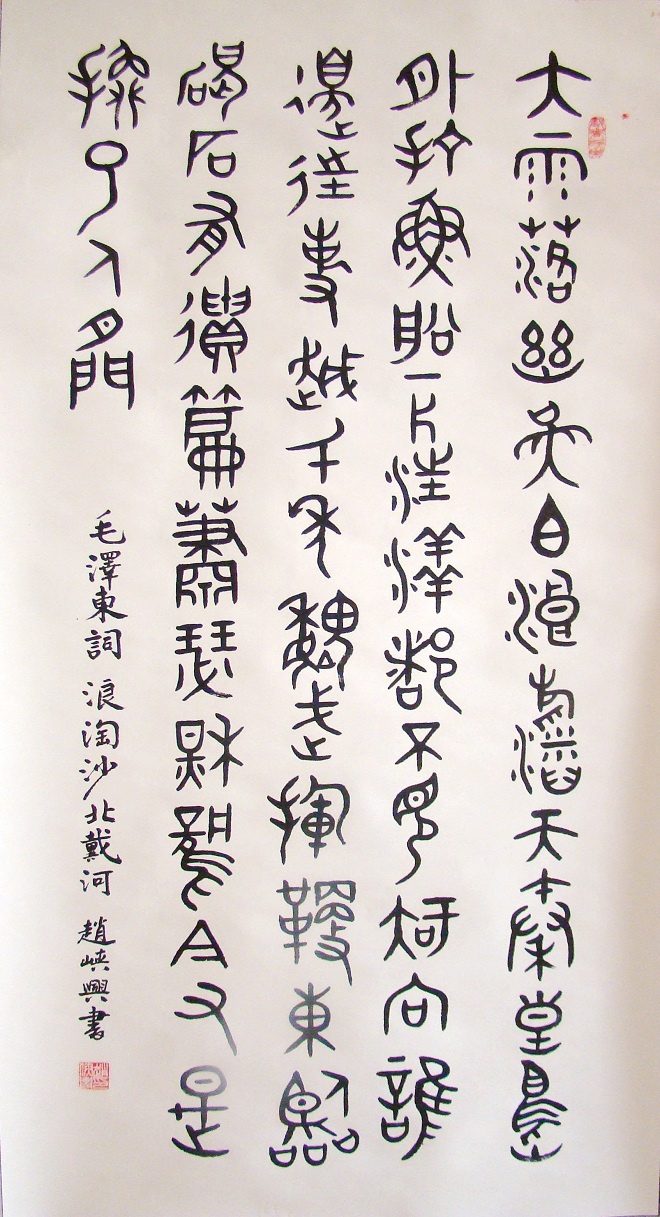 大雨落幽燕白浪滔天秦皇島
外打魚船一片汪洋都不見知向誰
邊往事越千年魏武揮鞭東臨
碣石有遺篇蕭瑟秋風今又是
換了人間
毛澤東詞 浪淘沙北戴河 趙峽興書